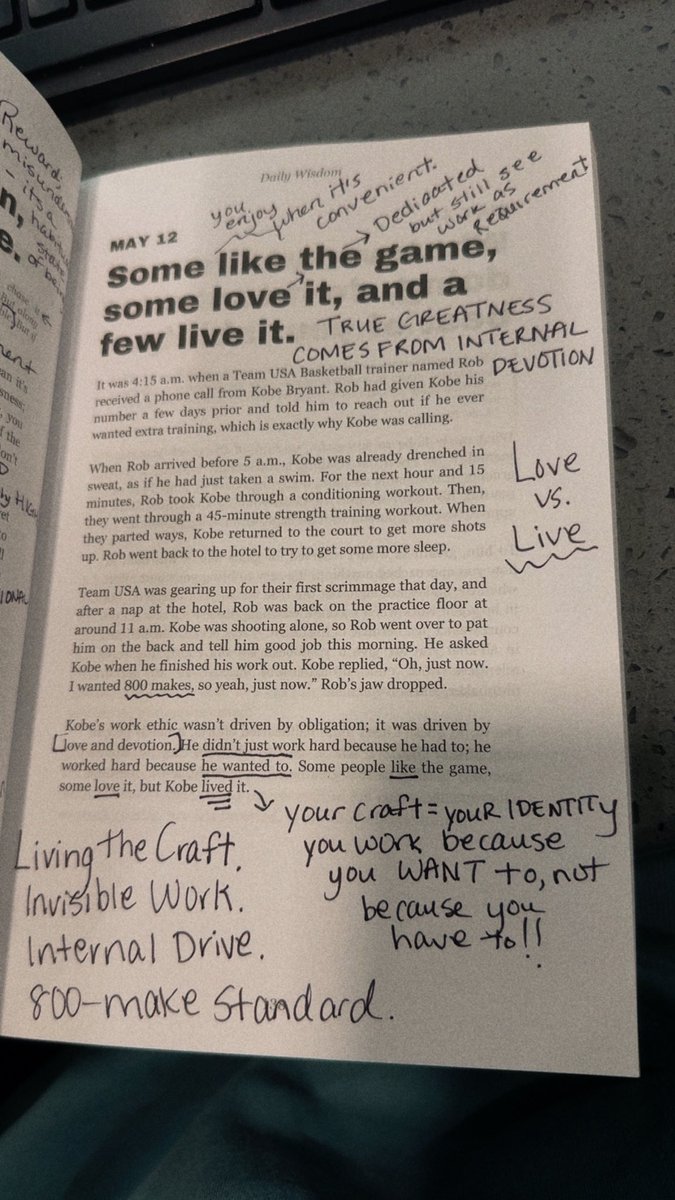 Reward,
misunder
- it's a
n, habitua
state
e. of bein
Daily Wisdom
you enjoy when it's convenient.
Dedicated
but still see
work as
Requirement
MAY 12
Some like the game,
some love it, and a
few live it.
TRUE GREATNESS
COMES FROM INTERNAL
DEVOTION
It was 4:15 a.m. when a Team USA Basketball trainer named Rob
received a phone call from Kobe Bryant. Rob had given Kobe his
number a few days prior and told him to reach out if he ever
wanted extra training, which is exactly why Kobe was calling.
When Rob arrived before 5 a.m., Kobe was already drenched in
sweat, as if he had just taken a swim. For the next hour and 15
minutes, Rob took Kobe through a conditioning workout. Then,
they went through a 45-minute strength training workout. When
they parted ways, Kobe returned to the court to get more shots
up. Rob went back to the hotel to try to get some more sleep.
Love
vs.
Live
Team USA was gearing up for their first scrimmage that day, and
after a nap at the hotel, Rob was back on the practice floor at
around 11 a.m. Kobe was shooting alone, so Rob went over to pat
him on the back and tell him good job this morning. He asked
Kobe when he finished his work out. Kobe replied, “Oh, just now.
I wanted 800 makes, so yeah, just now.” Rob’s jaw dropped.
Kobe’s work ethic wasn’t driven by obligation; it was driven by
love and devotion. He didn’t just work hard because he had to; he
worked hard because he wanted to. Some people like the game,
some love it, but Kobe lived it.
your craft = your IDENTITY
you work because
you WANT to, not
because you
have to!!
Living the Craft.
Invisible Work.
Internal Drive.
800-make Standard.